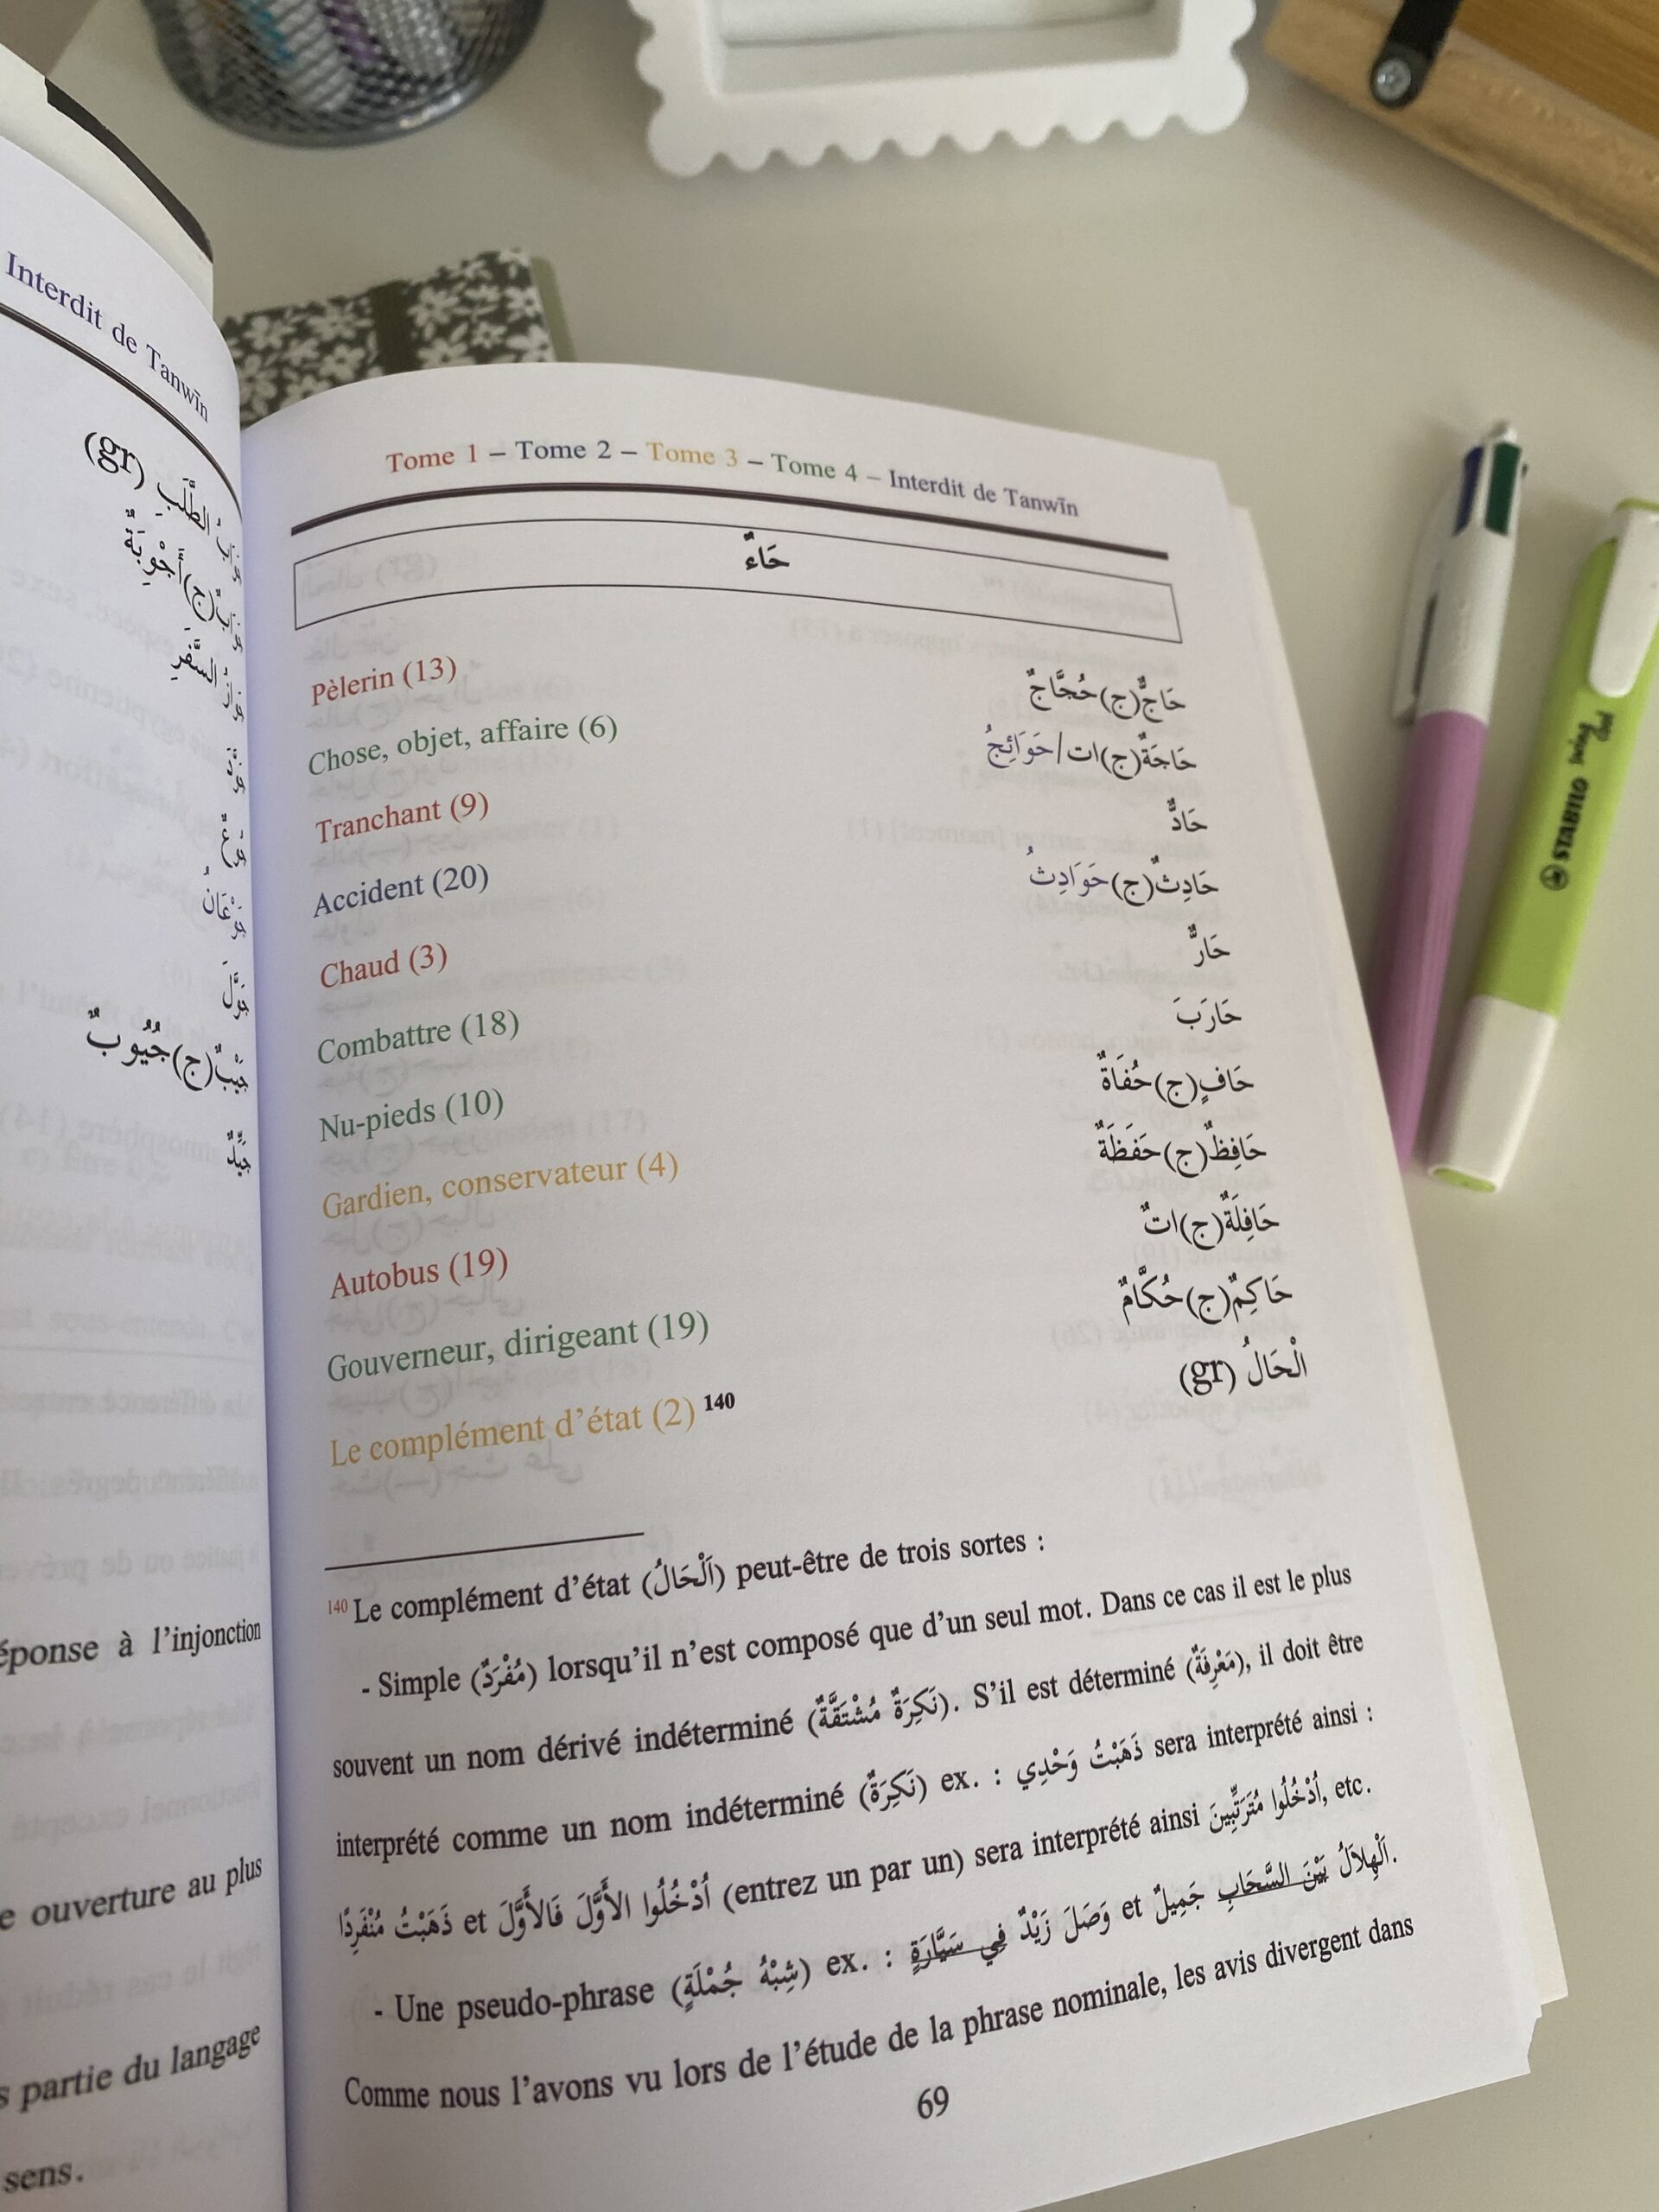 Interdit de Tanwīn
الطَّلَبِ (gr)
(ج)أَجْوِبَةٌ
السَّفَرِ
(ج)جُيُوبٌ
جَيِّدٌ
éponse à l'injonction
e ouverture au plus
s partie du langage
sens.
Tome 1 – Tome 2 – Tome 3 – Tome 4 – Interdit de Tanwīn
حَاءٌ
Pèlerin (13) حَاجٌّ(ج)حُجَّاجٌ
Chose, objet, affaire (6) حَاجَةٌ(ج)ات/حَوَائِجُ
Tranchant (9) حَادٌّ
Accident (20) حَادِثٌ(ج)حَوَادِثُ
Chaud (3) حَارٌّ
Combattre (18) حَارَبَ
Nu-pieds (10) حَافٍ(ج)حُفَاةٌ
Gardien, conservateur (4) حَافِظٌ(ج)حَفَظَةٌ
Autobus (19) حَافِلَةٌ(ج)اتٌ
Gouverneur, dirigeant (19) حَاكِمٌ(ج)حُكَّامٌ
Le complément d'état (2) 140 الْحَالُ (gr)
140 Le complément d'état (اَلْحَالُ) peut-être de trois sortes :
- Simple (مُفْرَدٌ) lorsqu'il n'est composé que d'un seul mot. Dans ce cas il est le plus
souvent un nom dérivé indéterminé (نَكِرَةٌ مُشْتَقَّةٌ). S'il est déterminé (مَعْرِفَةٌ), il doit être
interprété comme un nom indéterminé (نَكِرَةٌ) ex. : ذَهَبْتُ وَحْدِي sera interprété ainsi :
ذَهَبْتُ مُنْفَرِدًا et أُدْخُلُوا الأَوَّلَ فَالأَوَّلَ (entrez un par un) sera interprété ainsi أُدْخُلُوا مُتَرَتِّبِينَ, etc.
- Une pseudo-phrase (شِبْهُ جُمْلَةٍ) ex. : وَصَلَ زَيْدٌ فِي سَيَّارَةٍ et اَلْهِلاَلُ بَيْنَ السَّحَابِ جَمِيلٌ.
Comme nous l'avons vu lors de l'étude de la phrase nominale, les avis divergent dans
69
STABILO swing cool